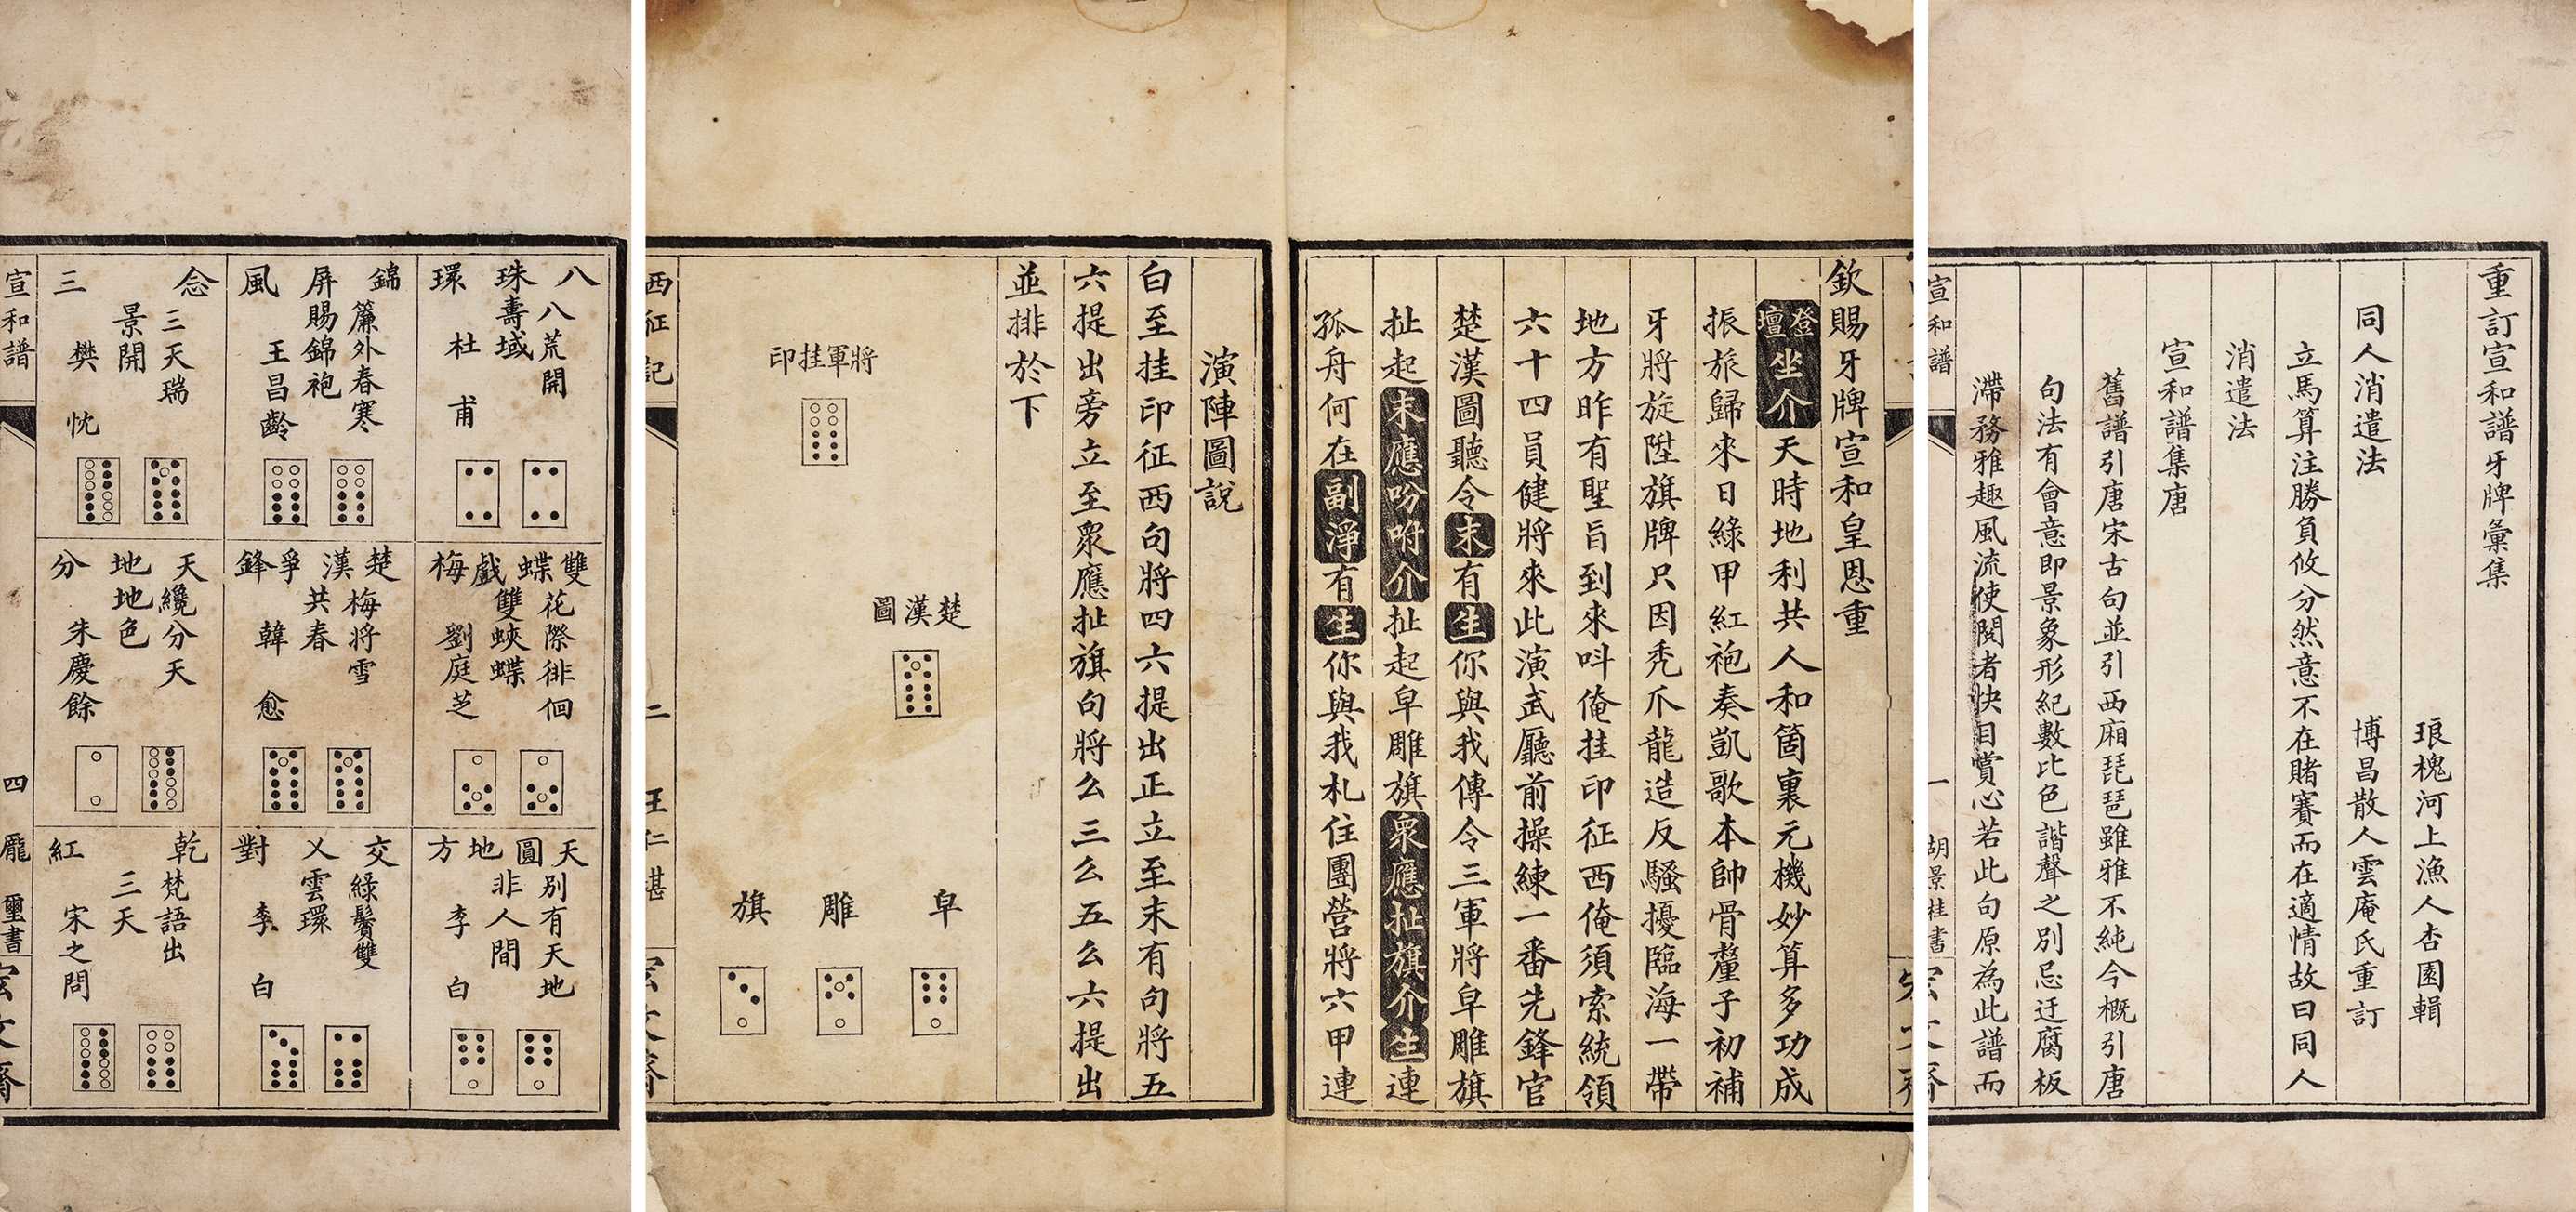 重訂宣和譜牙牌彙集
琅槐河上漁人杏園輯
同人消遣法　博昌散人雲庵氏重訂
立馬算注勝負攸分然意不在賭賽而在適情故曰同人
消遣法
宣和譜集唐
舊譜引唐宋古句並引西廂琵琶雖雅不純今概引唐
句法有會意即景象形紀數比色諧聲之別忌迂腐板
滯務雅趣風流使閱者快目賞心若此句原為此譜而
宣和譜　一　胡景桂書
欽賜牙牌宣和皇恩重
登壇坐介天時地利共人和箇裏元機妙算多功成
振旅歸來日綠甲紅袍奏凱歌本帥骨釐子初補
牙將旋陞旗牌只因禿爪龍造反騷擾臨海一帶
地方昨有聖旨到來呌俺挂印征西俺須索統領
六十四員健將來此演武廳前操練一番先鋒官
楚漢圖聽令末有生你與我傳令三軍將皁雕旗
扯起末應吩咐介扯起皁雕旗衆應扯旗介生連
孤舟何在副淨有生你與我札住團營將六甲連
演陣圖說
白至挂印征西句將四六提出正立至末有句將五
六提出旁立至衆應扯旗句將么三么五么六提出
並排於下
將軍挂印
楚漢圖
皁　雕　旗
西征記　二　王仁堪
八珠環
八荒開壽域
杜甫
雙蝶戲梅
花際徘徊雙蛺蝶
劉庭芝
天圓地方
別有天地非人間
李白
錦屏風
簾外春寒賜錦袍
王昌齡
楚漢爭鋒
梅將雪共春
韓愈
交乂對
綠鬢雙雲環
李白
念三
三天瑞景開
樊忱
天地分
纔分天地色
朱慶餘
乾紅
梵語出三天
宋之問
宣和譜　四　龐璽書
宏文齋